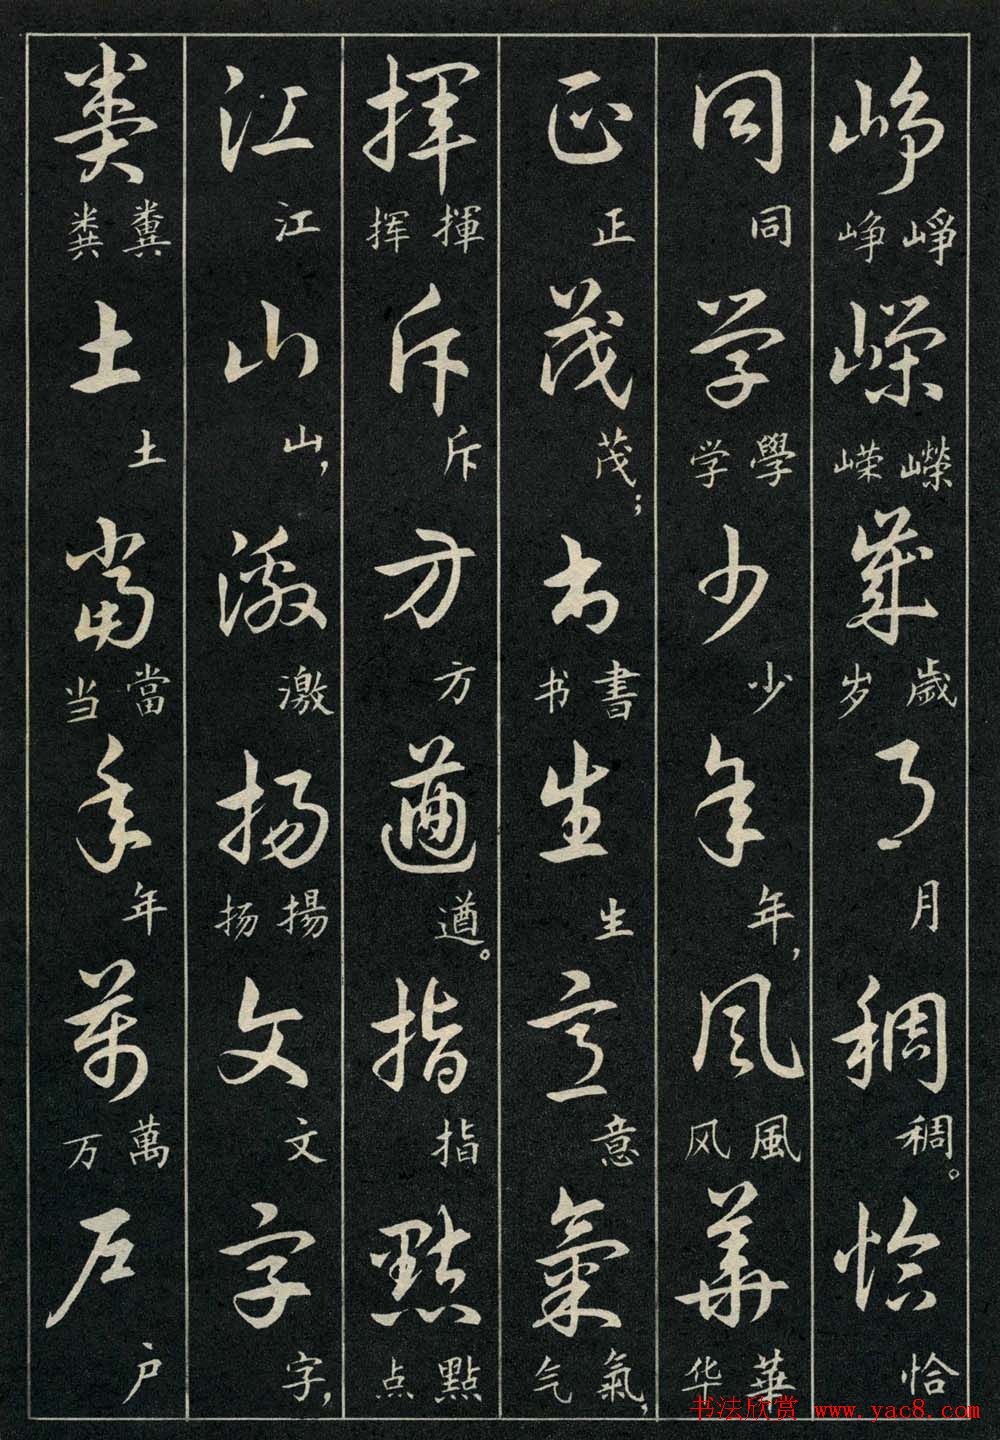 峥崢峥嵘嶸嵘歲歲岁月月稠稠。恰恰
同同学學学少少年年，风風风華華华
正正茂茂；书書书生生意意氣氣，气
挥揮挥斥斥方方遒遒。指指點點点
江江山山，激激扬揚扬文文字字，
粪糞粪土土當當当年年萬萬万户户
书法欣赏 www.yac8.com